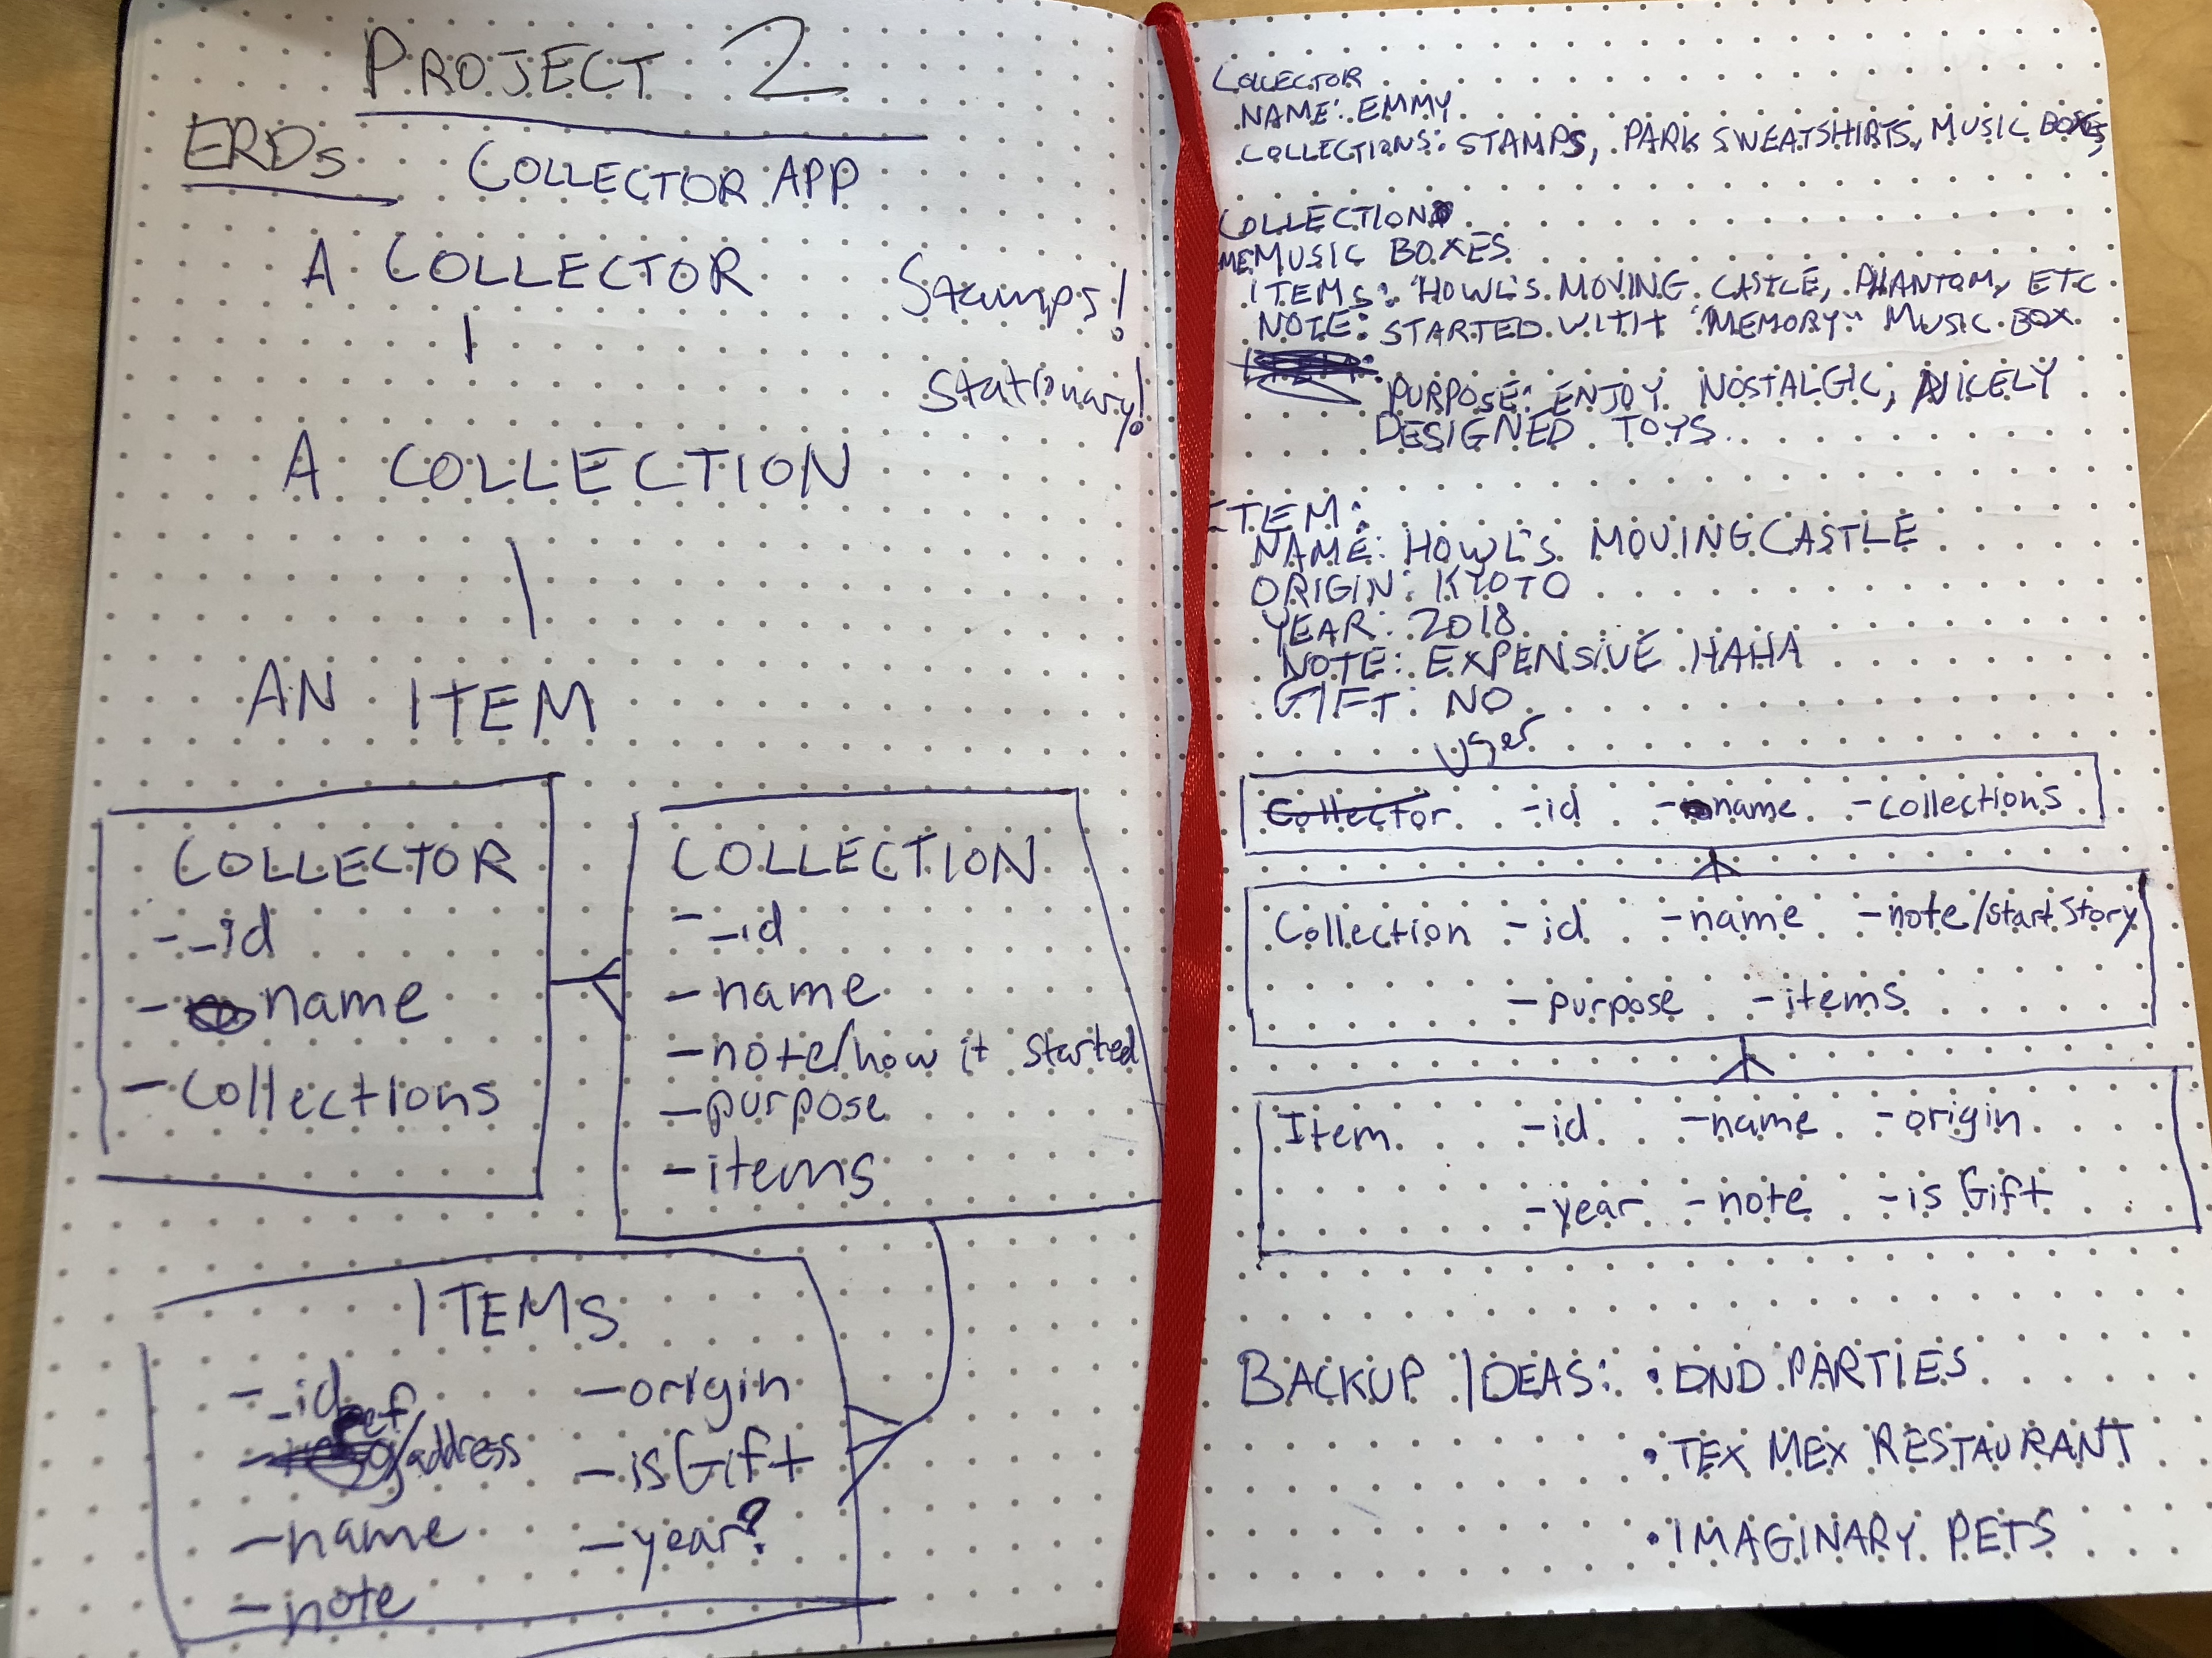 PROJECT 2
ERDs
COLLECTOR APP
A COLLECTOR
Stamps!
Stationary!
A COLLECTION
AN ITEM
COLLECTOR
- _id
- name
- collections
COLLECTION
- _id
- name
- note/how it started
- purpose
- items
ITEMS
- _id
ef/address
- name
- note
- origin
- isGift
- year?
COLLECTOR
NAME: EMMY
COLLECTIONS: STAMPS, PARK SWEATSHIRTS, MUSIC BOXES,
COLLECTION
MUSIC BOXES
ITEMS: HOWL'S MOVING CASTLE, PHANTOM, ETC
NOTE: STARTED WITH "MEMORY" MUSIC BOX
PURPOSE: ENJOY NOSTALGIC, NICELY
DESIGNED TOYS
ITEM:
NAME: HOWL'S MOVING CASTLE
ORIGIN: KYOTO
YEAR: 2018
NOTE: EXPENSIVE HAHA
GIFT: NO
User
Collector -id -name -collections
Collection -id -name -note/start story
-purpose -items
Item -id -name -origin
-year -note -is Gift
BACKUP IDEAS: • DND PARTIES
• TEX MEX RESTAURANT
• IMAGINARY PETS